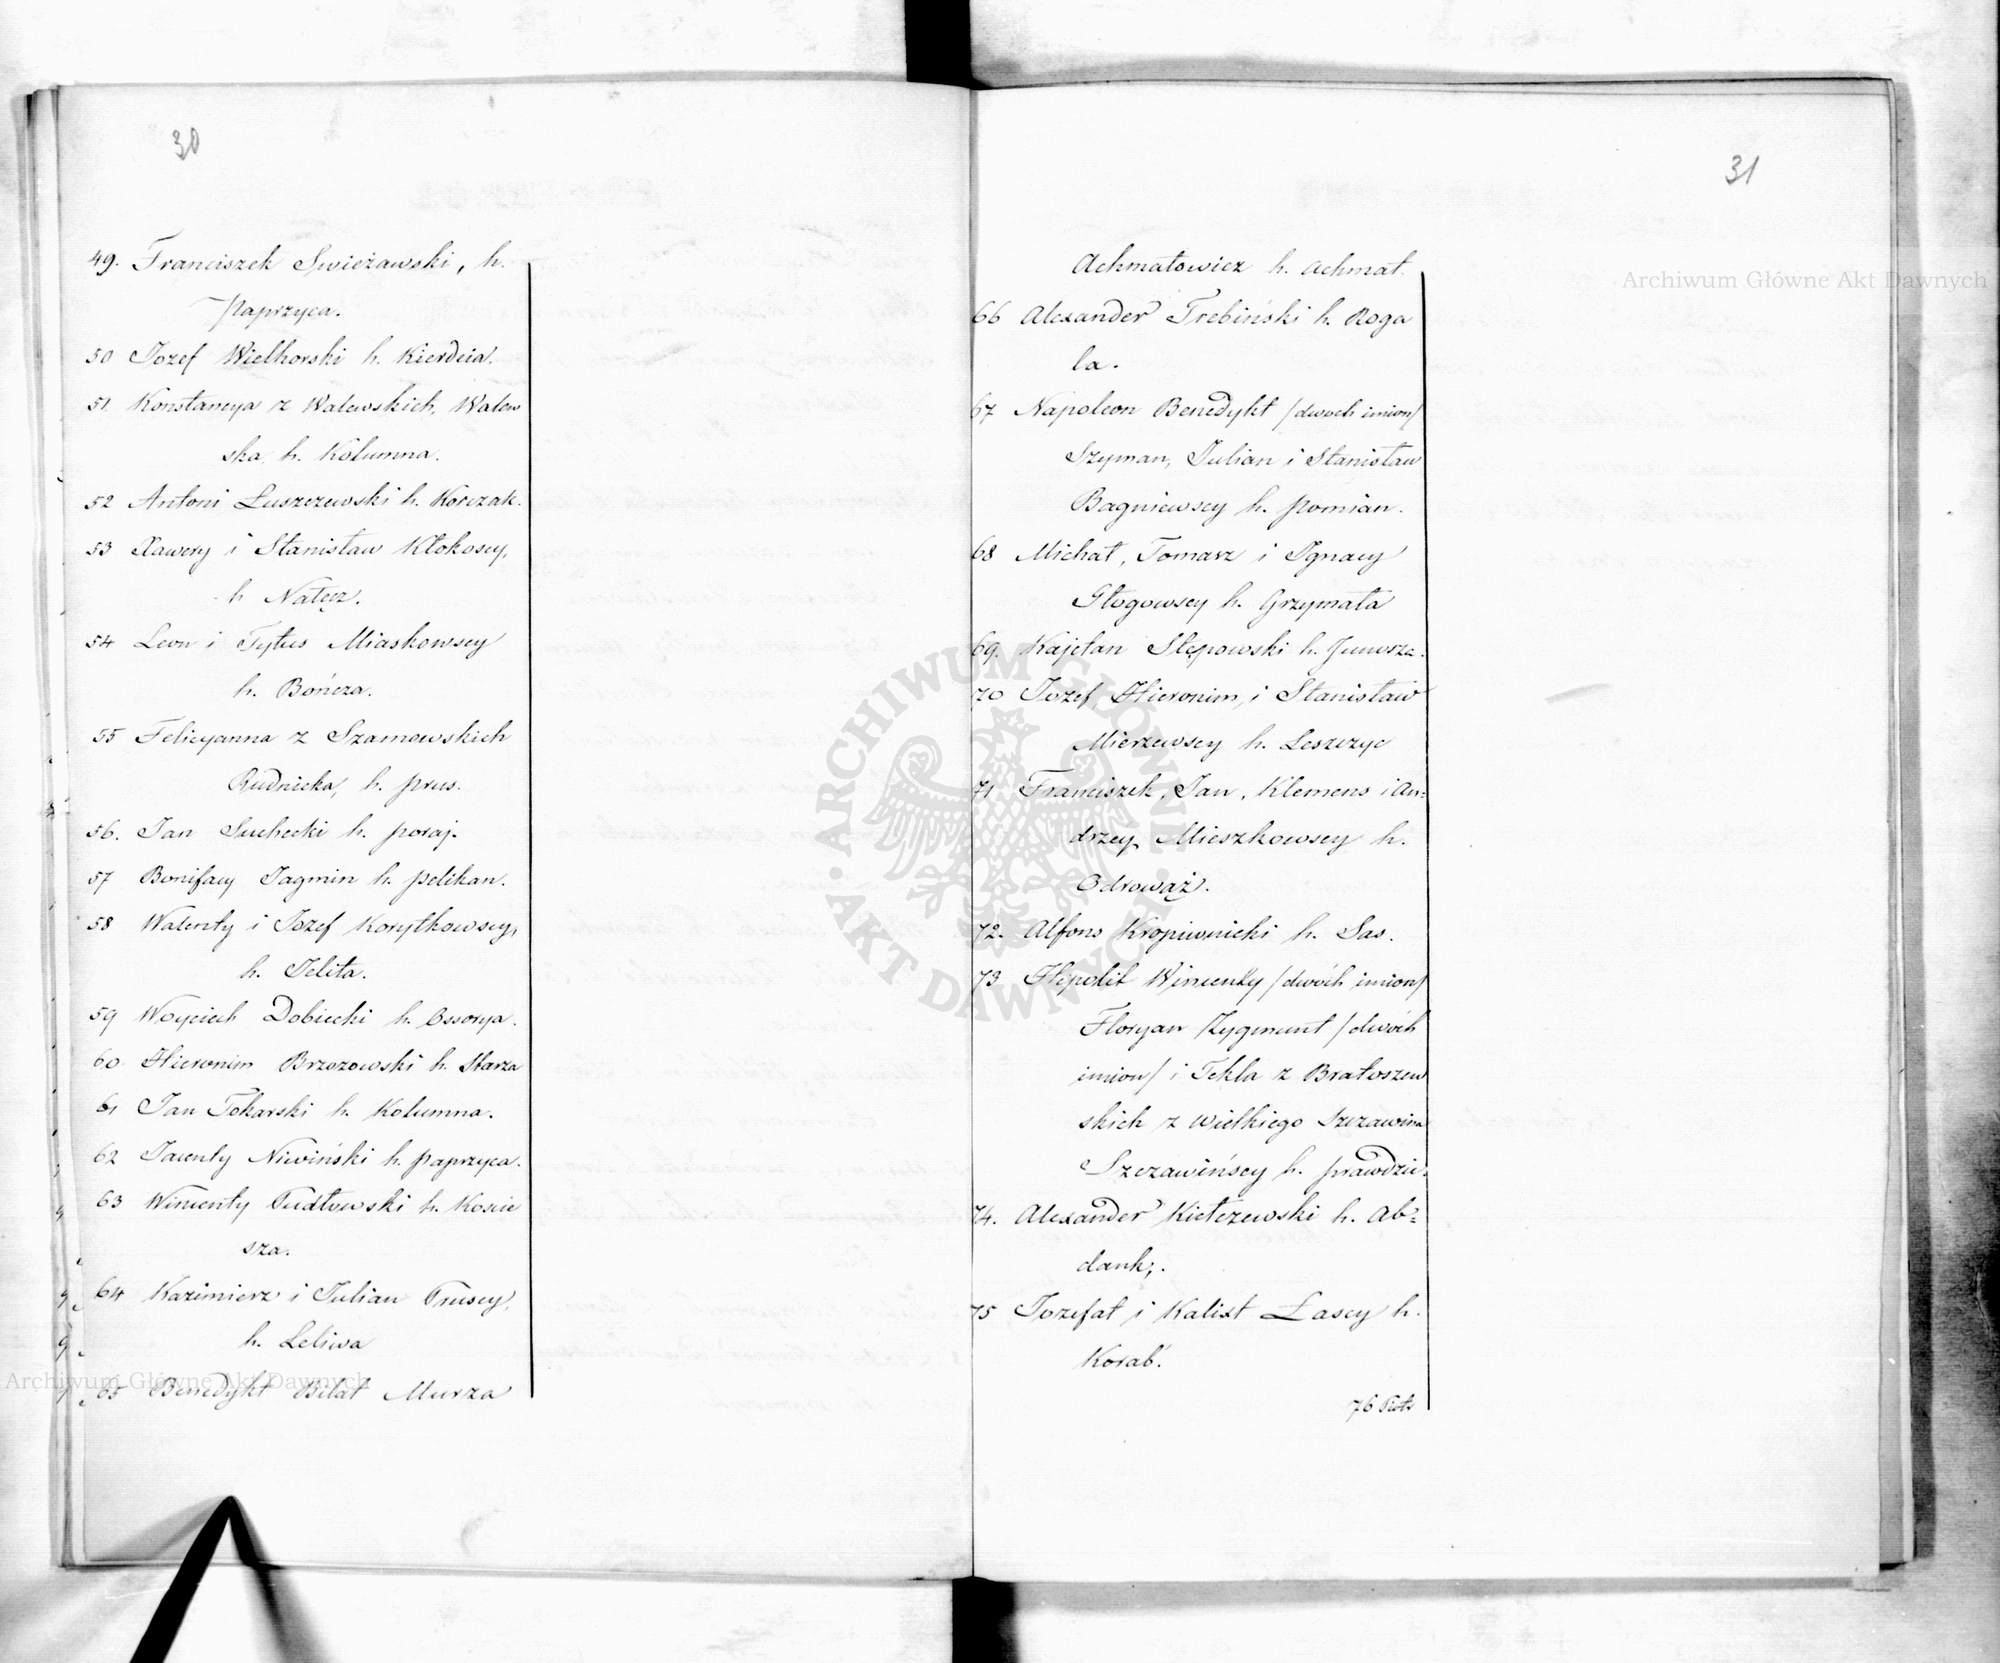 30
49. Franciszek Swieżawski, h.
Paprzyca.
50 Jozef Wielhorski h. Kierdeia.
51. Konstancya z Walewskich, Walew
ska, h. Kolumna.
52 Antoni Łuszczewski h. Korczak.
53 Xawery i Stanisław Kłokoscy,
h Nałęcz.
54 Leon i Tytus Miaskowscy
h. Bończa.
55 Felicyanna z Szamowskich
Rudnicka, h. prus.
56. Jan Suchecki h. poraj.
57 Bonifacy Jagmin h. pelikan.
58 Walenty i Jozef Korytkowscy,
h. Jelita.
59 Woyciech Dobiecki h. Ossorya.
60. Hieronim Brzozowski h. Starza
61 Jan Tokarski h. Kolumna.
62 Jacenty Niwiński h. paprzyca.
63 Wincenty Pudłowski h. Koście
sza.
64 Kazimierz i Julian Pruscy,
h. Leliwa
65 Benedykt Bilat Murza
31
Achmatowicz h. Achmat.
66 Alexander Trebiński h. Roga
la.
67 Napoleon Benedykt /dwoch imion/
Szyman, Julian i Stanisław
Bagniewscy h. pomian.
68 Michał, Tomasz i Ignacy
Głogowscy h. Grzymała
69. Kajetan Stępowski h. Junosza.
70 Jozef, Hieronim, i Stanisław
Mierzewscy h. Leszczyc
71 Franciszek, Jan, Klemens i An=
drzey Mieszkowscy h.
Odrowąż.
72. Alfons Kropiwnicki h. Sas.
73 Hipolit Wincenty /dwóch imion/
Floryan Zygmunt /dwóch
imion/ i Tekla z Bratoszew
skich z Wielkiego Szczawina
Szczawińscy h. prawdzic.
74. Alexander Kiełczewski h. Ab=
dank,.
75 Jozefat i Kalixt Łascy h.
Korab.
76 Piotr
Archiwum Główne Akt Dawnych
Archiwum Główne Akt Dawnych
ARCHIWUM GŁÓWNE · AKT DAWNYCH ·